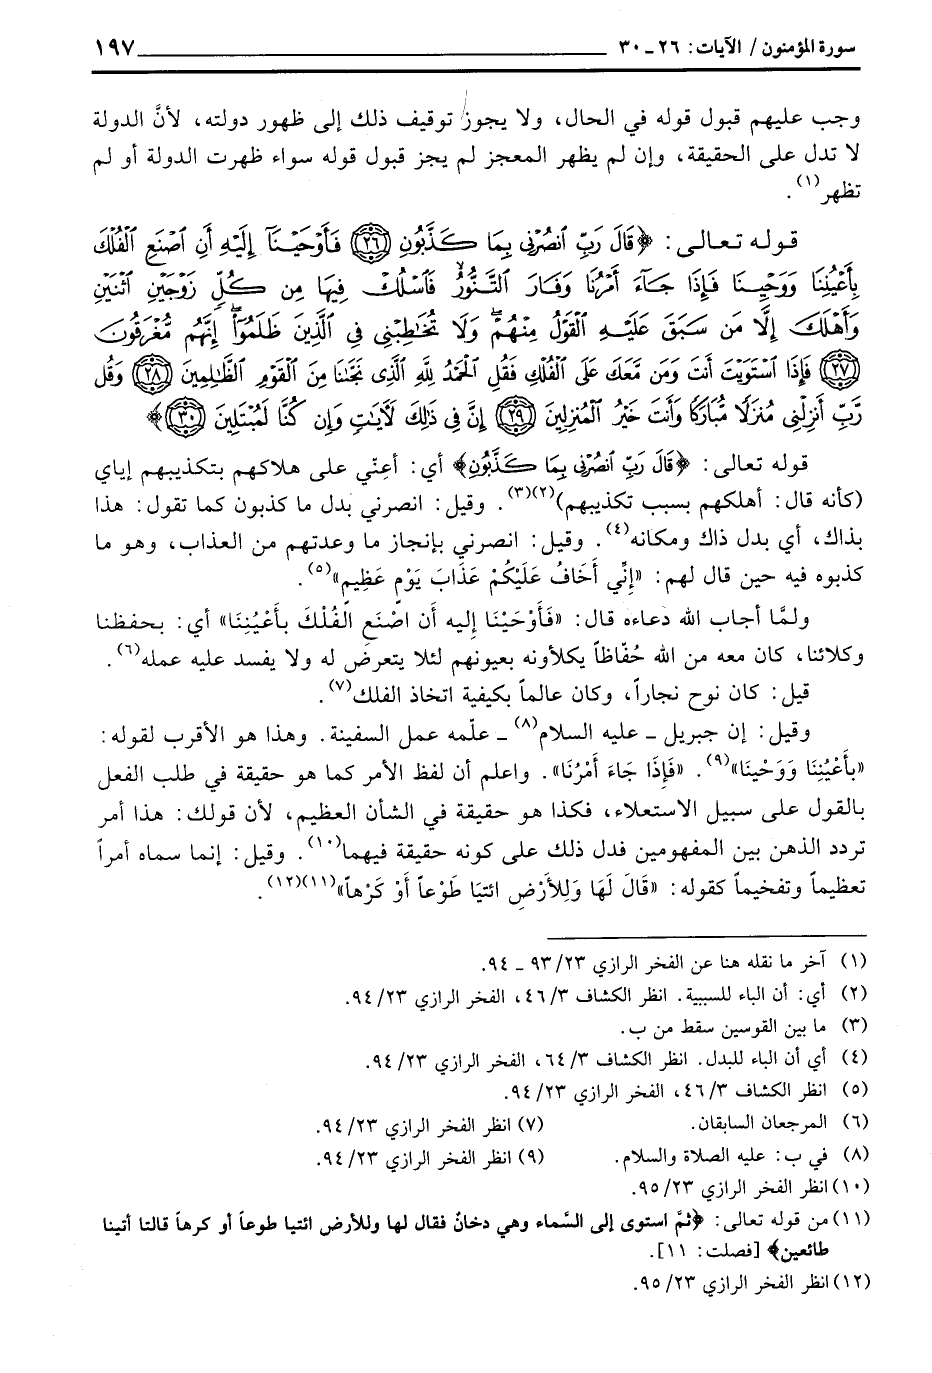 سورة المؤمنون / الآيات: ٢٦ ـ ٣٠ ١٩٧
وجب عليهم قبول قوله في الحال، ولا يجوز توقيف ذلك إلى ظهور دولته، لأنَّ الدولة
لا تدل على الحقيقة، وإن لم يظهر المعجز لم يجز قبول قوله سواء ظهرت الدولة أو لم
تظهر(١).
قوله تعالى: ﴿قَالَ رَبِّ ٱنصُرْنِى بِمَا كَذَّبُونِ ﴿٢٦﴾ فَأَوْحَيْنَآ إِلَيْهِ أَنِ ٱصْنَعِ ٱلْفُلْكَ
بِأَعْيُنِنَا وَوَحْيِنَا فَإِذَا جَآءَ أَمْرُنَا وَفَارَ ٱلتَّنُّورُ ۙ فَٱسْلُكْ فِيهَا مِن كُلٍّ زَوْجَيْنِ ٱثْنَيْنِ
وَأَهْلَكَ إِلَّا مَن سَبَقَ عَلَيْهِ ٱلْقَوْلُ مِنْهُمْ ۖ وَلَا تُخَٰطِبْنِى فِى ٱلَّذِينَ ظَلَمُوٓا۟ ۖ إِنَّهُم مُّغْرَقُونَ
﴿٢٧﴾ فَإِذَا ٱسْتَوَيْتَ أَنتَ وَمَن مَّعَكَ عَلَى ٱلْفُلْكِ فَقُلِ ٱلْحَمْدُ لِلَّهِ ٱلَّذِى نَجَّىٰنَا مِنَ ٱلْقَوْمِ ٱلظَّٰلِمِينَ ﴿٢٨﴾ وَقُل
رَّبِّ أَنزِلْنِى مُنزَلًا مُّبَارَكًا وَأَنتَ خَيْرُ ٱلْمُنزِلِينَ ﴿٢٩﴾ إِنَّ فِى ذَٰلِكَ لَءَايَٰتٍ وَإِن كُنَّا لَمُبْتَلِينَ ﴿٣٠﴾﴾
قوله تعالى: ﴿قَالَ رَبِّ ٱنصُرْنِى بِمَا كَذَّبُونِ﴾ أي: أعِنّي على هلاكهم بتكذيبهم إياي
(كأنه قال: أهلكهم بسبب تكذيبهم)(٢)(٣). وقيل: انصرني بدل ما كذبون كما تقول: هذا
بذاك، أي بدل ذاك ومكانه(٤). وقيل: انصرني بإنجاز ما وعدتهم من العذاب، وهو ما
كذبوه فيه حين قال لهم: «إِنِّي أَخَافُ عَلَيْكُمْ عَذَابَ يَوْمٍ عَظِيم»(٥).
ولمَّا أجاب الله دعاءه قال: «فَأَوْحَيْنَا إليه أَن اصْنَعِ الْفُلْكَ بِأَعْيُنِنَا» أي: بحفظنا
وكلائنا، كان معه من الله حُفّاظاً يكلأونه بعيونهم لئلا يتعرض له ولا يفسد عليه عمله(٦).
قيل: كان نوح نجاراً، وكان عالماً بكيفية اتخاذ الفلك(٧).
وقيل: إن جبريل ـ عليه السلام(٨) ـ علّمه عمل السفينة. وهذا هو الأقرب لقوله:
«بِأَعْيُنِنَا وَوَحْيِنا»(٩). «فَإِذَا جَاءَ أَمْرُنَا». واعلم أن لفظ الأمر كما هو حقيقة في طلب الفعل
بالقول على سبيل الاستعلاء، فكذا هو حقيقة في الشأن العظيم، لأن قولك: هذا أمر
تردد الذهن بين المفهومين فدل ذلك على كونه حقيقة فيهما(١٠). وقيل: إنما سماه أمراً
تعظيماً وتفخيماً كقوله: «قَالَ لَهَا وَلِلأَرْضِ ائتيَا طَوْعاً أَوْ كَرْهاً»(١١)(١٢).
(١) آخر ما نقله هنا عن الفخر الرازي ٢٣/٩٣ ـ ٩٤.
(٢) أي: أن الباء للسببية. انظر الكشاف ٣/٤٦، الفخر الرازي ٢٣/٩٤.
(٣) ما بين القوسين سقط من ب.
(٤) أي أن الباء للبدل. انظر الكشاف ٣/٦٤، الفخر الرازي ٢٣/٩٤.
(٥) انظر الكشاف ٣/٤٦، الفخر الرازي ٢٣/٩٤.
(٦) المرجعان السابقان. (٧) انظر الفخر الرازي ٢٣/٩٤.
(٨) في ب: عليه الصلاة والسلام. (٩) انظر الفخر الرازي ٢٣/٩٤.
(١٠) انظر الفخر الرازي ٢٣/٩٥.
(١١) من قوله تعالى: ﴿ثمَّ استوى إلى السَّماء وهي دخانٌ فقال لها وللأرض ائتيا طوعاً أو كرهاً قالتا أتينا
طائعين﴾ [فصلت: ١١].
(١٢) انظر الفخر الرازي ٢٣/٩٥.